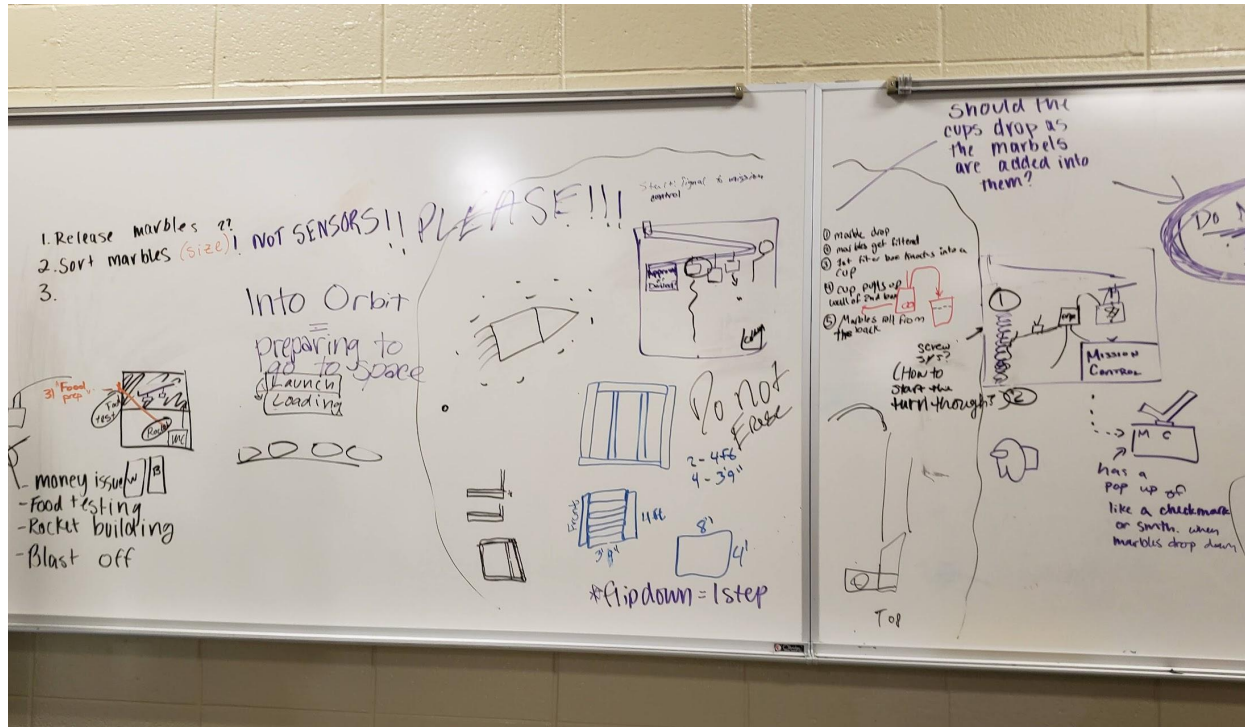 1. Release marbles ??
2. Sort marbles (size)! NOT SENSORS!! PLEASE!!!
3.
Into Orbit
=
preparing to
go to space
Launch
Loading
3) "Food
prep"
Food
test
Rocket
MC
W B
- money issue
- Food testing
- Rocket building
- Blast off
Start: Signal to mission
control
Do not
Erase
2 - 4ft
4 - 3'9"
Front
4ft
3' 9"
8'
4'
*flipdown = 1 step
Should the
cups drop as
the marbels
are added into
them?
Do N
① marble drop
② marbles get filtered
③ 1st filter two knocks into a
cup
④ cup pulls up
wall of 2nd box
⑤ Marbles fall from
the back
screw
sys?
(How to
start the
turn though?)
①
②
MISSION
CONTROL
M C
has a
pop up of
like a checkmark
or smth. when
marbles drop down
Top